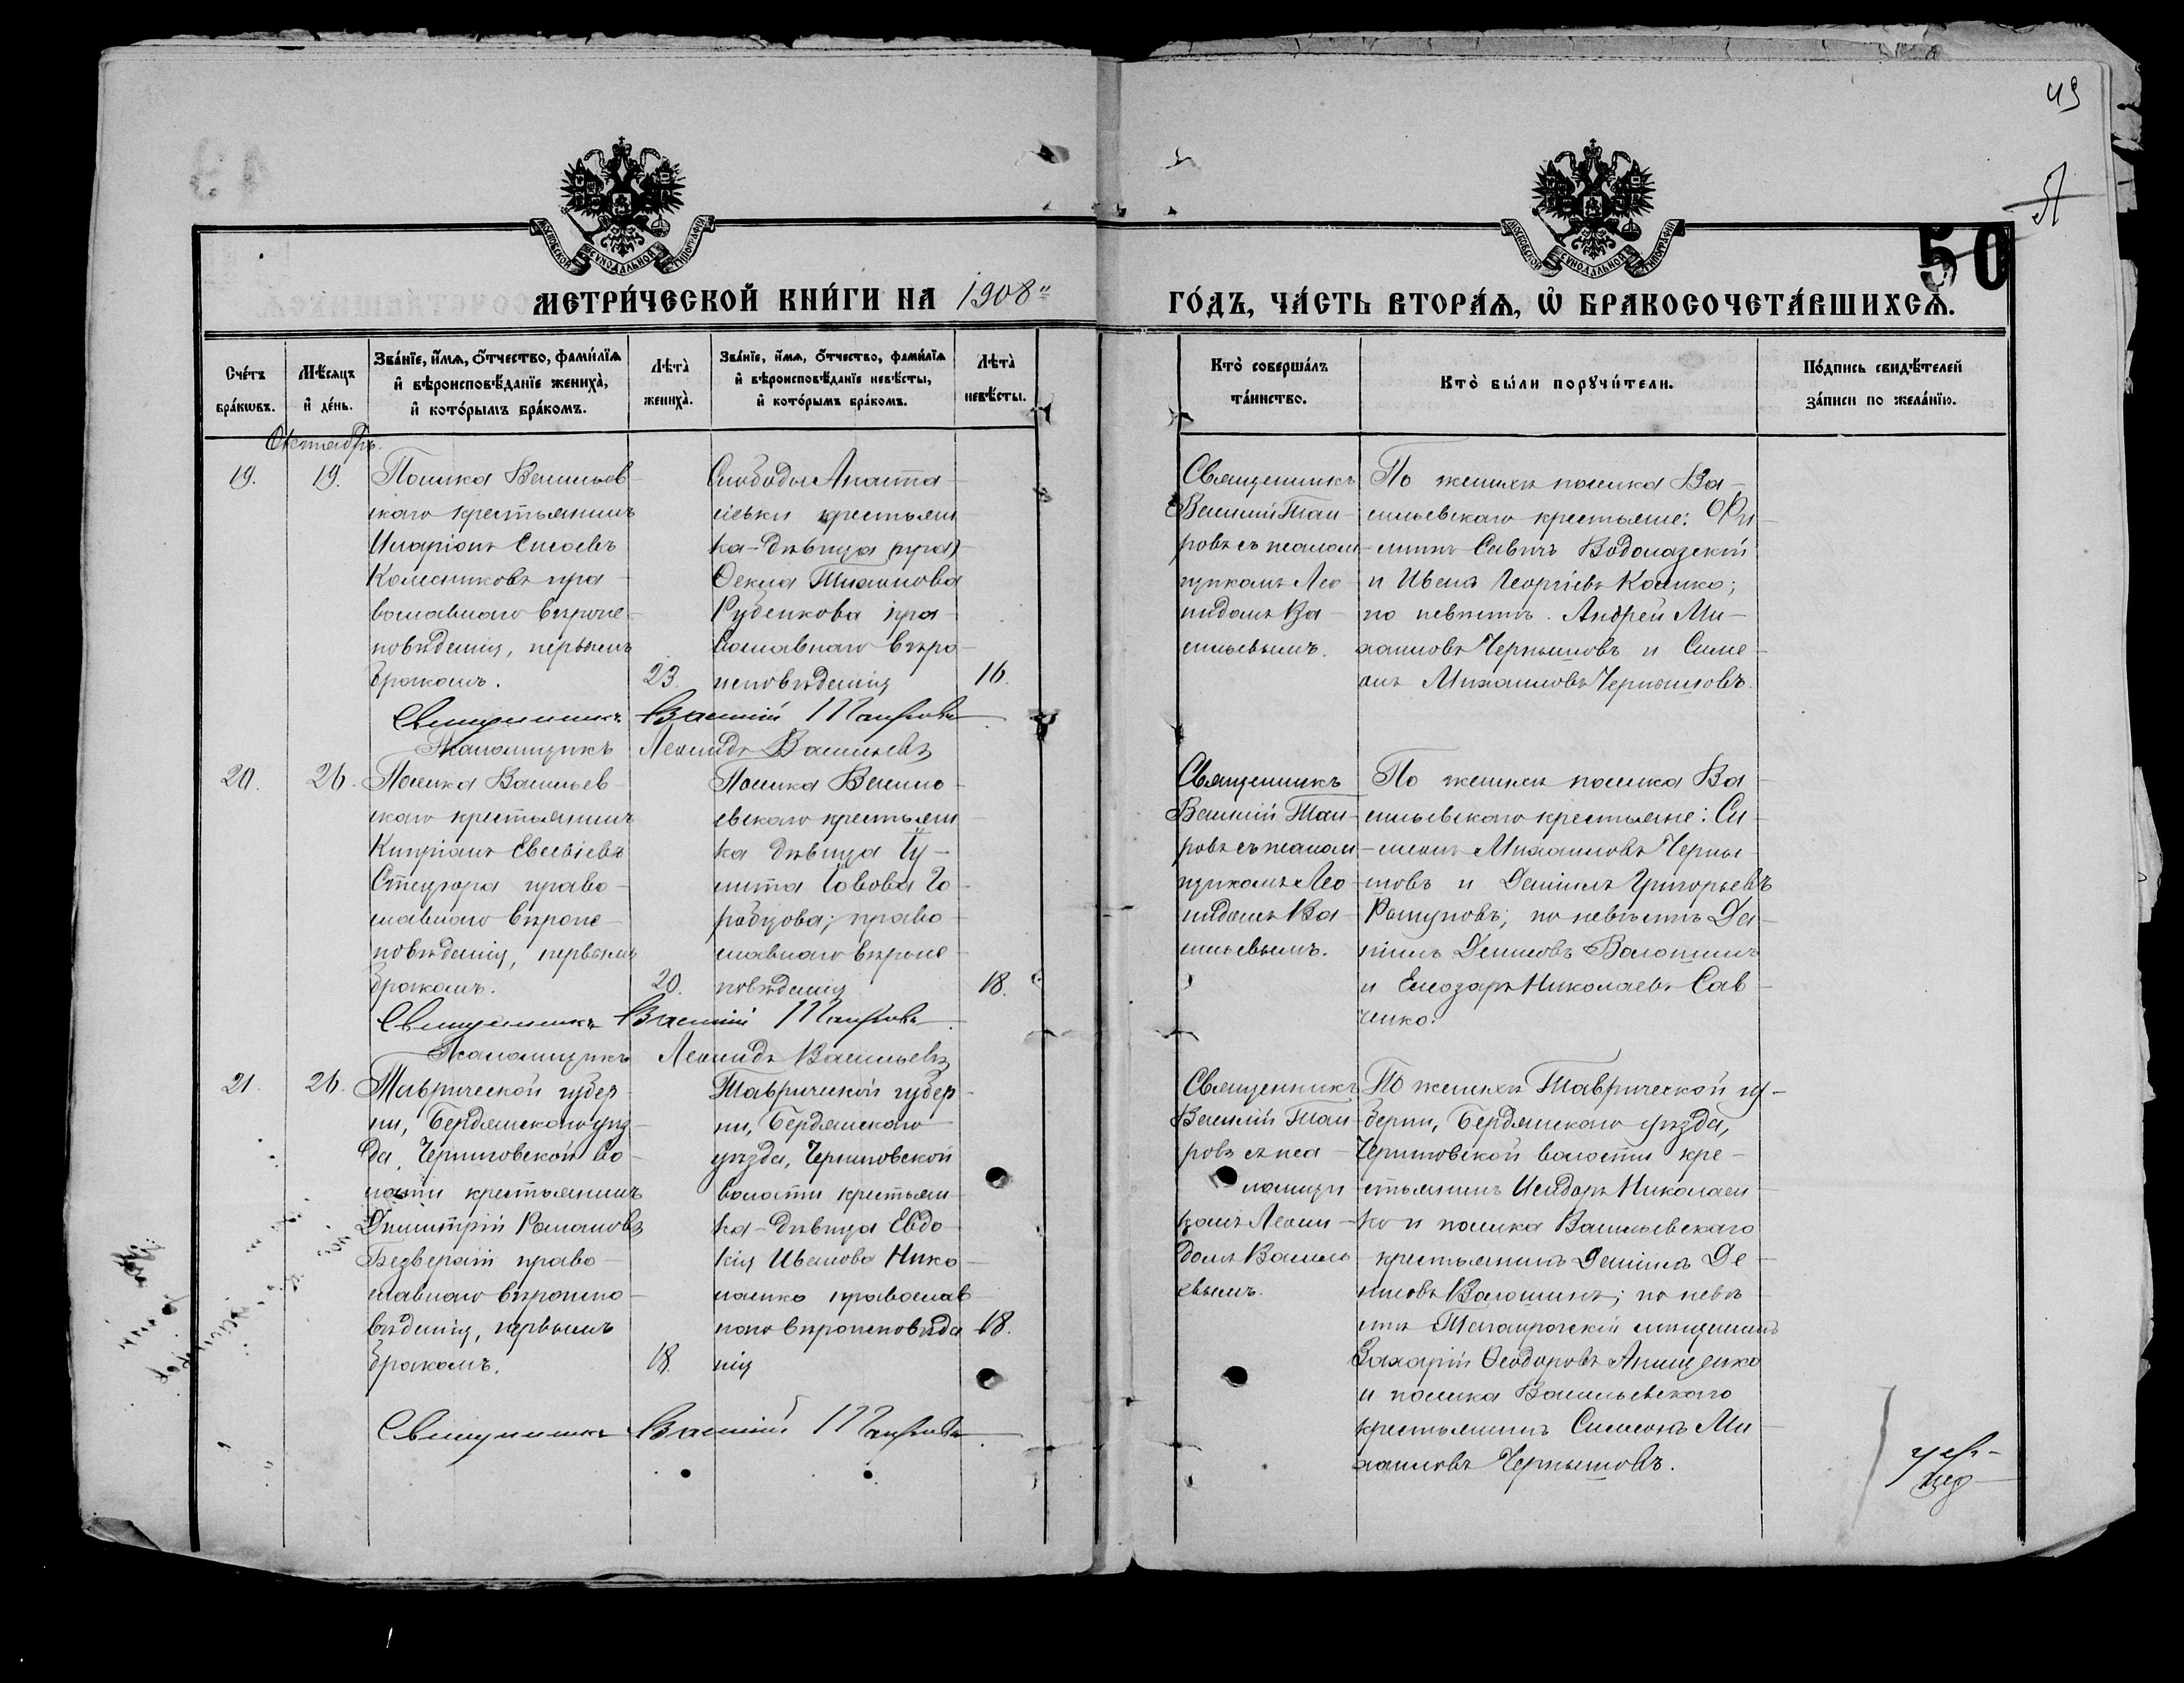 49
50
МОСКОВСКОЙ СУНОДАЛЬНОЙ ТИПОГРАФІИ
МОСКОВСКОЙ СУНОДАЛЬНОЙ ТИПОГРАФІИ
МЕТРИ́ЧЕСКОЙ КНИ́ГИ НА 1908й
ГО́ДЪ, ЧА́СТЬ ВТОРА́Ѧ, Ѽ БРАКОСОЧЕТА́ВШИХСѦ.
Сче́тъ бра́кѡвъ.
Мѣ́сѧцъ и҆ де́нь.
Зва́нїе, и҆́мѧ, ѻ҆́тчество, фами́лїѧ и҆ вѣроисповѣ́данїе жениха̀, и҆ кото́рымъ бра́комъ.
Лѣта̀ жениха̀.
Зва́нїе, и҆́мѧ, ѻ҆́тчество, фами́лїѧ и҆ вѣроисповѣ́данїе невѣ́сты, и҆ кото́рымъ бра́комъ.
Лѣта̀ невѣ́сты.
Кто̀ соверша́лъ та́инство.
Кто̀ бы́ли порꙋчи́тели.
По́дпись свидѣ́телей за́писи по жела́нїю.
Октябрь.
19.
19.
Поселка Васильев-
скаго крестьянинъ
Иларіонъ Елисеевъ
Колесниковъ пра-
вославнаго вѣроис-
повѣданія, первымъ
бракомъ.
23.
Слободы Анаста-
сіевки крестьян
ка-дѣвица
Ѳекла Тихонова
Рубенкова пра-
вославнаго вѣро-
исповѣданія
16.
Священникъ
Василій Таи-
ровъ съ псалом-
щикомъ Лео-
нидомъ Ва-
сильевымъ.
По женихѣ поселка Ва-
сильевскаго крестьяне: Фи-
липпъ Савичъ Водолазскій
и Иванъ Георгіевъ Кошко;
по невѣстѣ. Андрей Ми-
хаиловъ Чернышовъ и Симе-
онъ Михаиловъ Чернышовъ.
Священникъ Василій Таировъ
Псаломщикъ Леонидъ Васильевъ
20.
26.
Поселка Васильев-
скаго крестьянинъ
Кипріанъ Евсевіевъ
право-
славнаго вѣроис-
повѣданія, первымъ
бракомъ.
20.
Поселка Василь-
евскаго крестьян
ка дѣвица Іу-
литта Іовова Го-
робцова; право-
славнаго вѣроис-
повѣданія
18.
Священникъ
Василій Таи-
ровъ съ псалом-
щикомъ Лео-
нидомъ Ва-
сильевымъ.
По женихѣ поселка Ва-
сильевскаго крестьяне: Си-
меонъ Михаиловъ Черны-
шовъ и Даніилъ Григорьевъ
по невѣстѣ Да-
ніилъ Волошинъ
и Елеазаръ Николаевъ Сав-
ченко.
Священникъ Василій Таировъ
Псаломщикъ Леонидъ Васильевъ
21.
26.
Таврической губер-
ніи, Бердянскаго уѣз-
да, Черниговской во-
лости крестьянинъ
Димитрій Романовъ
право-
славнаго вѣроиспо-
вѣданія, первымъ
бракомъ.
18.
Таврической губер-
ніи, Бердянскаго
уѣзда, Черниговской
волости крестьян-
ка-дѣвица Евдо-
кія Иванова Нико-
лаенко православ-
наго вѣроисповѣда
нія
18.
Священникъ
Василій Таи-
ровъ съ пса-
ломщи-
комъ Леони-
домъ Василь-
евымъ.
По женихѣ Таврической гу-
берніи, Бердянскаго уѣзда,
Черниговской волости кре-
стьянинъ Исидоръ Николаен-
ко и поселка Васильевскаго
крестьянинъ Даніилъ
Волошинъ; по невѣ-
стѣ Таганрогскій мѣщанинъ
Захарій Ѳеодоровъ Анищенко
и поселка Васильевскаго
крестьянинъ Симеонъ Ми-
хаиловъ Чернышовъ.
Священникъ Василій Таировъ